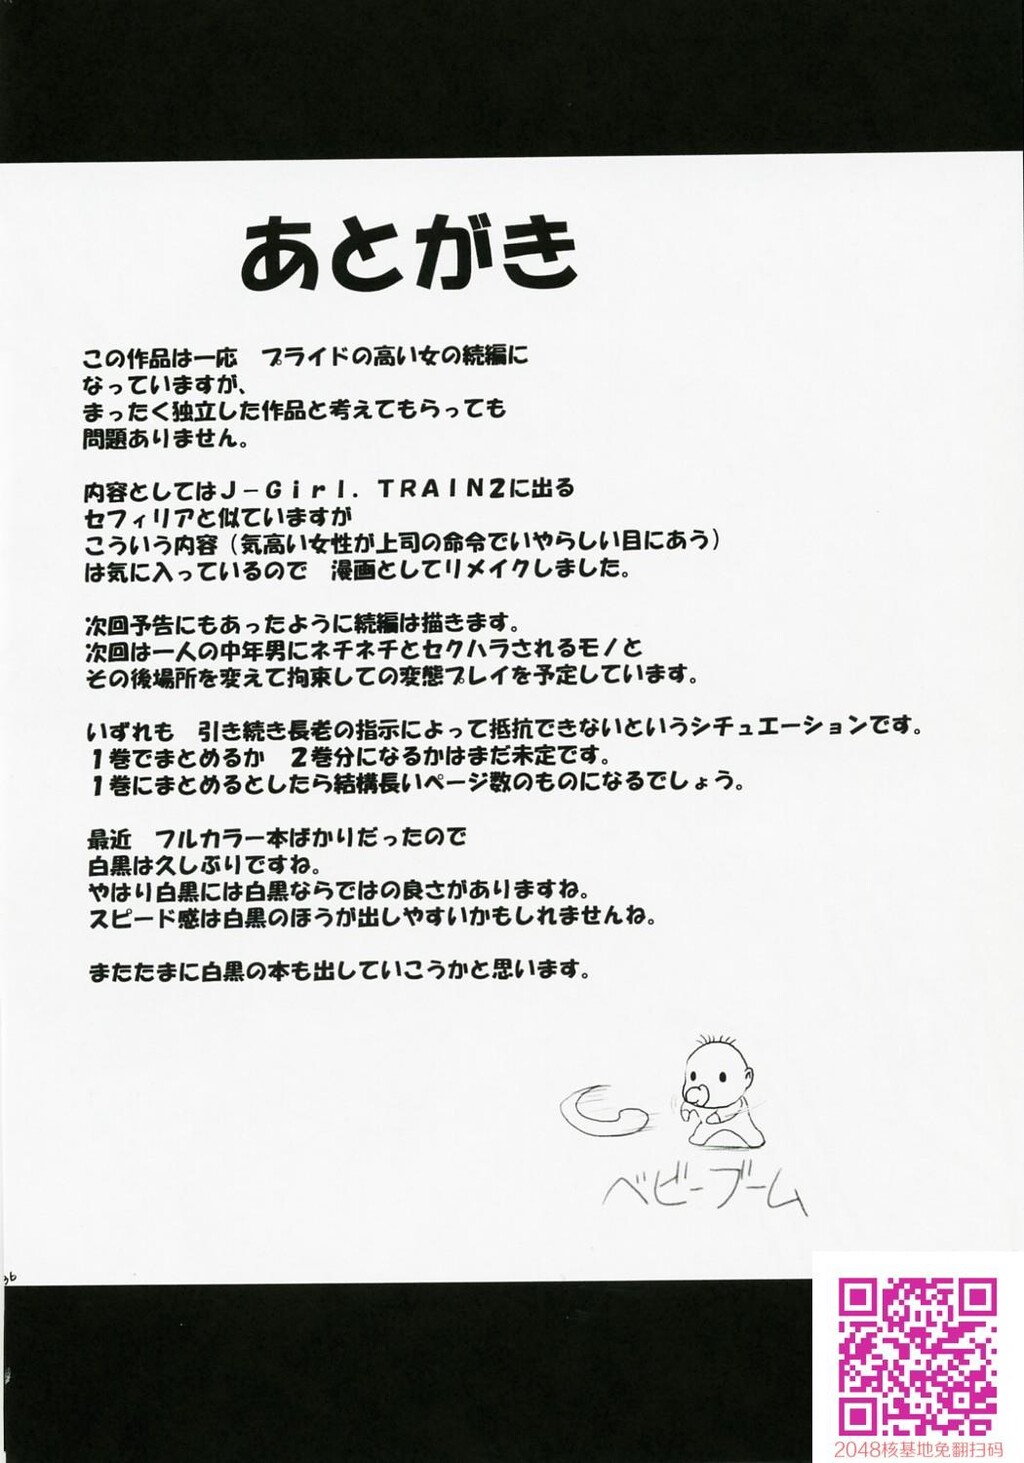 あとがき
この作品は一応　プライドの高い女の続編に
なっていますが、
まったく独立した作品と考えてもらっても
問題ありません。
内容としてはJ-Girl. TRAIN2に出る
セフィリアと似ていますが
こういう内容（気高い女性が上司の命令でいやらしい目にあう）
は気に入っているので　漫画としてリメイクしました。
次回予告にもあったように続編は描きます。
次回は一人の中年男にネチネチとセクハラされるモノと
その後場所を変えて拘束しての変態プレイを予定しています。
いずれも　引き続き長老の指示によって抵抗できないというシチュエーションです。
１巻でまとめるか　２巻分になるかはまだ未定です。
１巻にまとめるとしたら結構長いページ数のものになるでしょう。
最近　フルカラー本ばかりだったので
白黒は久しぶりですね。
やはり白黒には白黒ならではの良さがありますね。
スピード感は白黒のほうが出しやすいかもしれませんね。
またたまに白黒の本も出していこうかと思います。
ベビーブーム
36
2048核基地免翻扫码